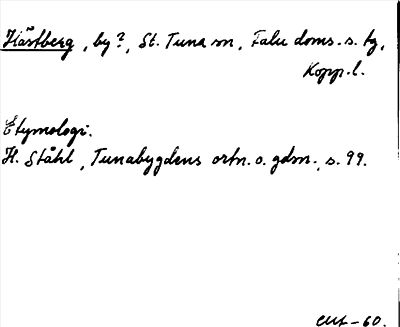 Hästberg, by?, St. Tuna sn, Falu doms. s. tg,
Kopp. l.
Etymologi.
H. Ståhl, Tunabygdens ortn. o. gdn., s. 99.
-60.